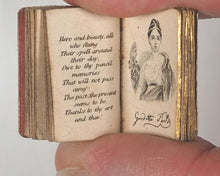 Hero and beauty, all
who fling
Their spell around
their day,
Owe to thy pencil
memories
That will not pass
away:
The past, the present
seems to be,
Thanks to thy art
and thee!
Giuditta Pasta